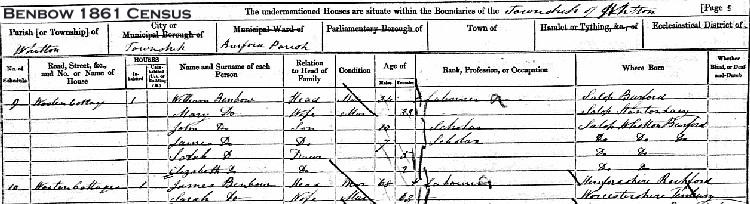 BENBOW 1861 CENSUS
The undermentioned Houses are situate within the Boundaries of the Township of Whitton [Page 5
Parish [or Township] of
Whitton
City or Municipal Borough of
Township
Municipal Ward of
Burford Parish
Parliamentary Borough of
Town of
Hamlet or Tything, &c., of
Ecclesiastical District of
No. of Schedule
Road, Street, &c., and No. or Name of House
HOUSES
Inhabited
Uninhabited (U.), or Building (B.)
Name and Surname of each Person
Relation to Head of Family
Condition
Age of
Males
Females
Rank, Profession, or Occupation
Where Born
Whether Blind, or Deaf-and-Dumb
9 1 William Benbow Head Mar 34 Labourer Salop Burford
Mary Do Wife Mar 33 Salop
John Do Son 10 Scholar Salop Whitton Burford
James Do Do 7 Scholar Do Do Do
Sarah D 5 Do Do
Elizabeth Do Do Do Do
10 1 James Benbow Head Mar 68 Labourer Herefordshire Rochford
Sarah Do Wife Mar Worcestershire